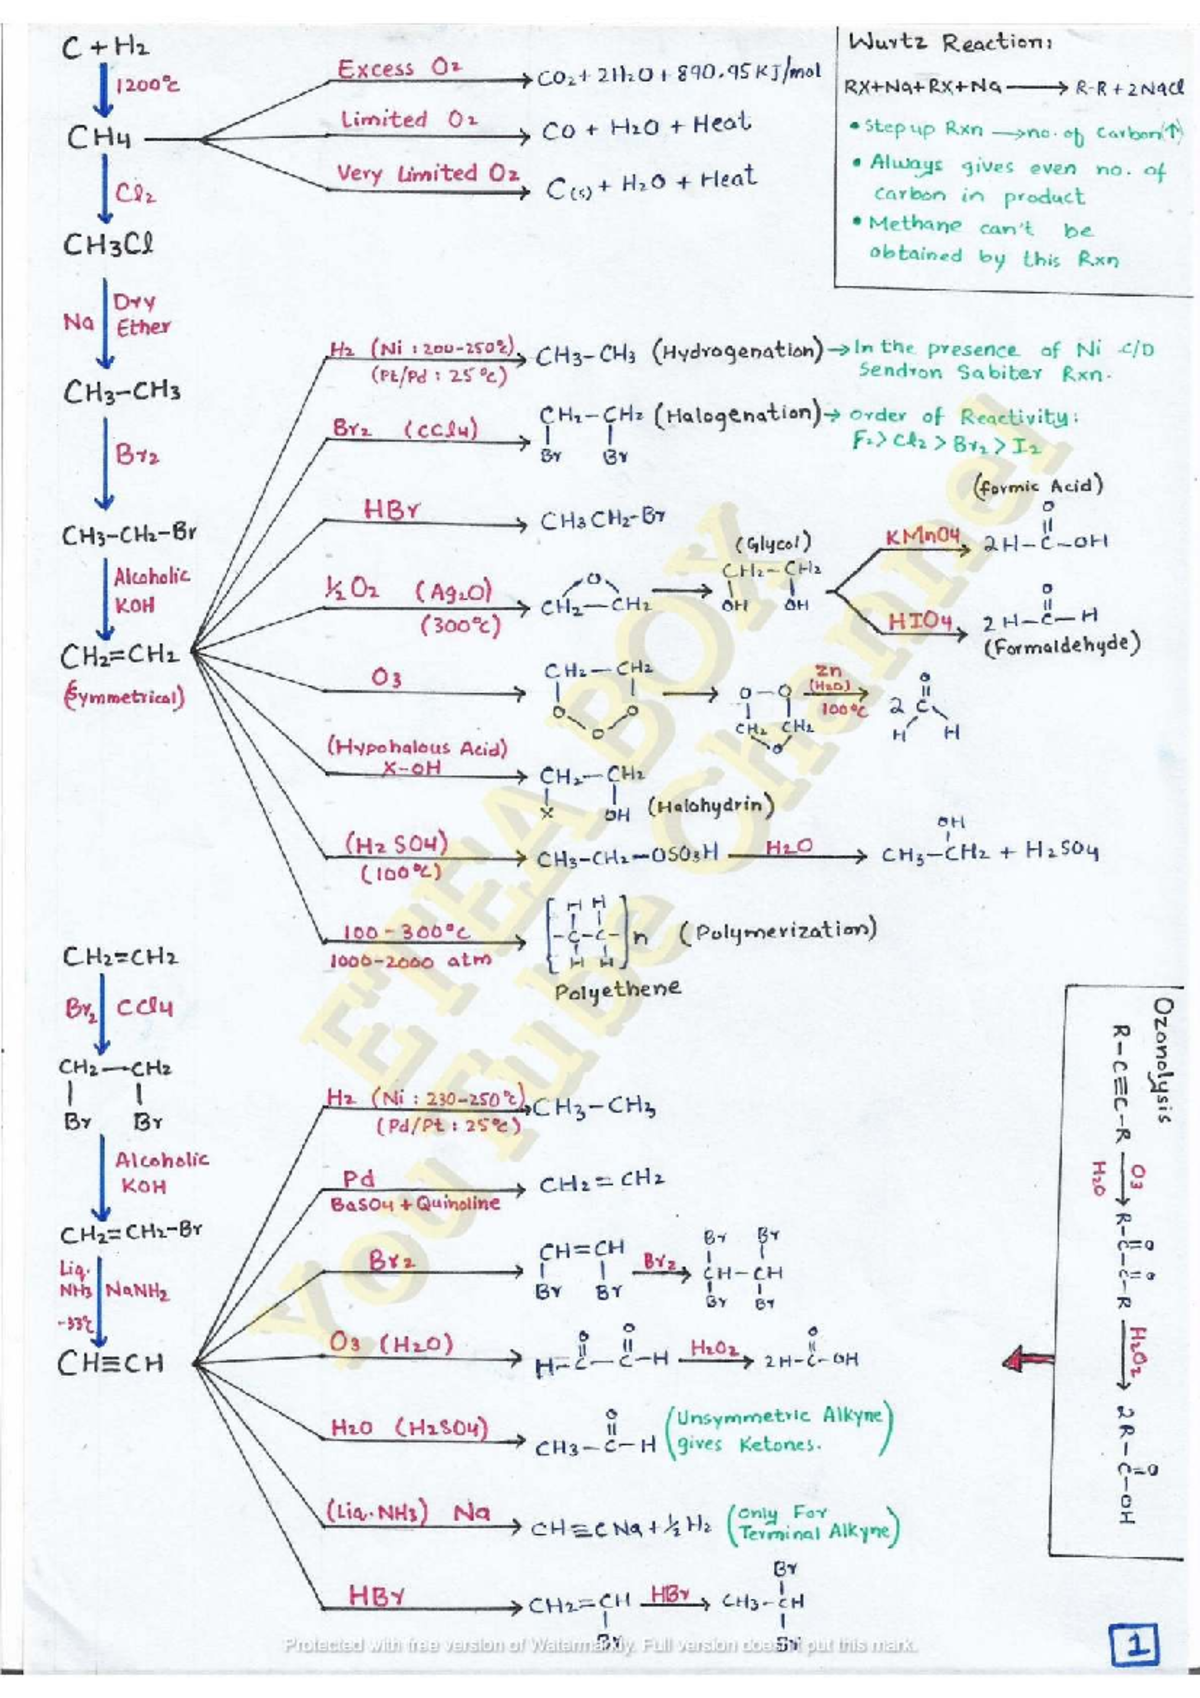 C + H2
1200°C
CH4
Excess O2
CO2 + 2H2O + 890.95 KJ/mol
Limited O2
CO + H2O + Heat
Very Limited O2
C(s) + H2O + Heat
Wurtz Reaction:
RX+Na+RX+Na → R-R + 2NaCl
• Step up Rxn → no. of Carbon(↑)
• Always gives even no. of
carbon in product
• Methane can't be
obtained by this Rxn
Cl2
CH3Cl
Na Dry
Ether
CH3-CH3
Br2
CH3-CH2-Br
Alcoholic
KOH
CH2=CH2
(Symmetrical)
H2 (Ni : 200-250°C)
(Pt/Pd : 25°C)
CH3-CH3 (Hydrogenation) → In the presence of Ni C/D
Sendron Sabiter Rxn.
Br2 (CCl4)
CH2-CH2 (Halogenation) → order of Reactivity:
Br Br
F2 > Cl2 > Br2 > I2
HBr
CH3CH2-Br
½O2 (Ag2O)
(300°C)
O
CH2-CH2
(Glycol)
CH2-CH2
OH OH
KMnO4
(Formic Acid)
O
2H-C-OH
HIO4
O
2H-C-H
(Formaldehyde)
O3
CH2-CH2
O O
O
O-O
CH2 CH2
O
Zn
(H2O)
100°C
O
2 C
H H
(Hypohalous Acid)
X-OH
CH2-CH2
X OH (Halohydrin)
(H2SO4)
(100°C)
CH3-CH2-OSO3H
H2O
OH
CH3-CH2 + H2SO4
100-300°C
1000-2000 atm
H H
-C-C- n (Polymerization)
H H
Polyethene
CH2=CH2
Br2 CCl4
CH2-CH2
Br Br
Alcoholic
KOH
CH2=CH2-Br
Liq.
NH3 NaNH2
-33°C
CH≡CH
H2 (Ni : 230-250°C)
(Pd/Pt : 25°C)
CH3-CH3
Pd
BaSO4 + Quinoline
CH2=CH2
Br2
CH=CH
Br Br
Br2
Br Br
CH-CH
Br Br
O3 (H2O)
O O
H-C-C-H
H2O2
O
2H-C-OH
H2O (H2SO4)
O
CH3-C-H
(Unsymmetric Alkyne
gives Ketones.)
(Liq.NH3) Na
CH≡CNa + ½H2
(only For
Terminal Alkyne)
HBr
CH2=CH
Br
HBr
Br
CH3-CH
Br
Ozonolysis
R-C≡C-R
O3
H2O
R-C-C-R
O O
H2O2
2R-C-OH
O
ETEA BOX
YouTube Channel
Protected with free version of Watermarkly. Full version doesn't put this mark.
1